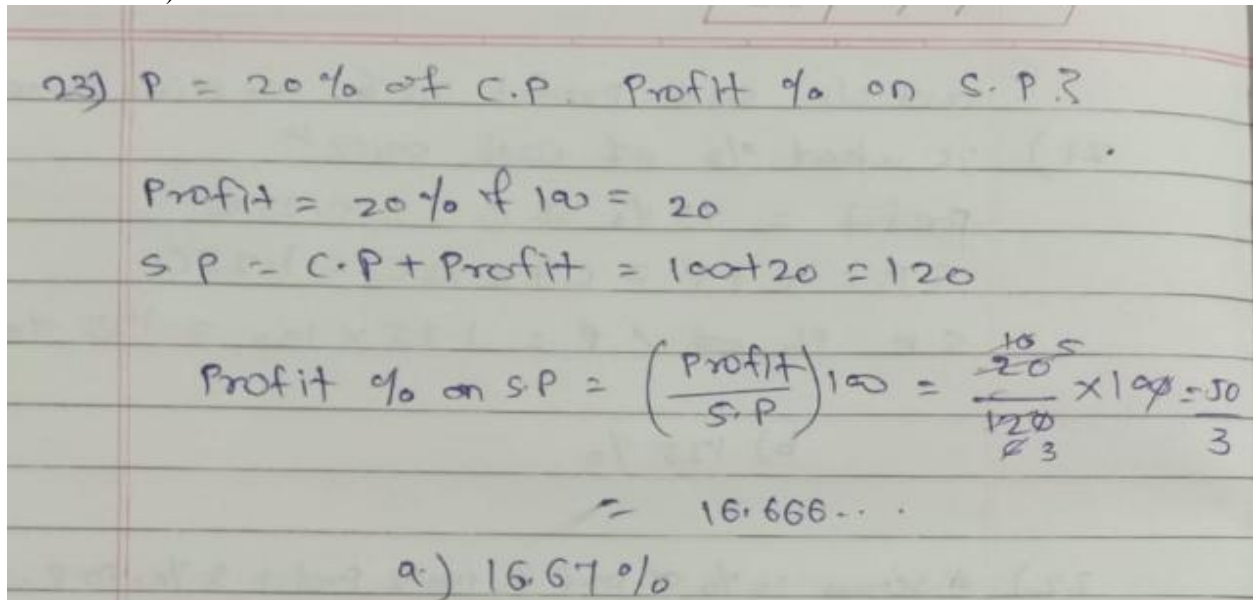 23) P = 20% of C.P Profit % on S.P?
Profit = 20% of 100 = 20
S P = C.P + Profit = 100+20 = 120
Profit % on S.P = (Profit/S.P) 100 = 20/120 × 100 = 50/3
= 16.666...
a.) 16.67%